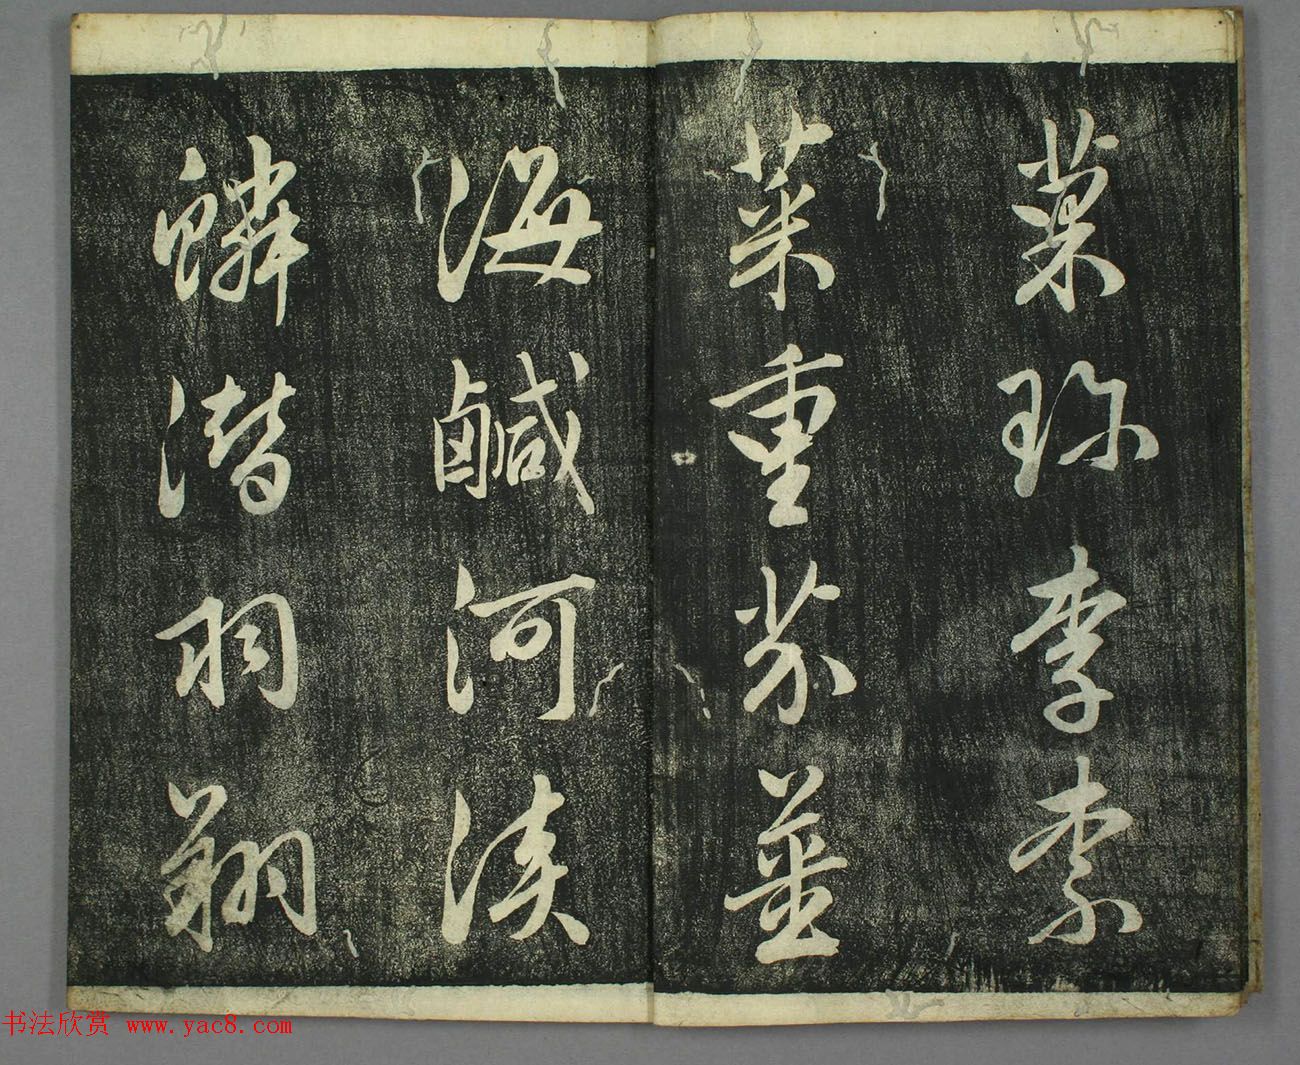 菓珎李柰
菜重芥薑
海鹹河淡
鱗潛羽翔
书法欣赏 www.yac8.com